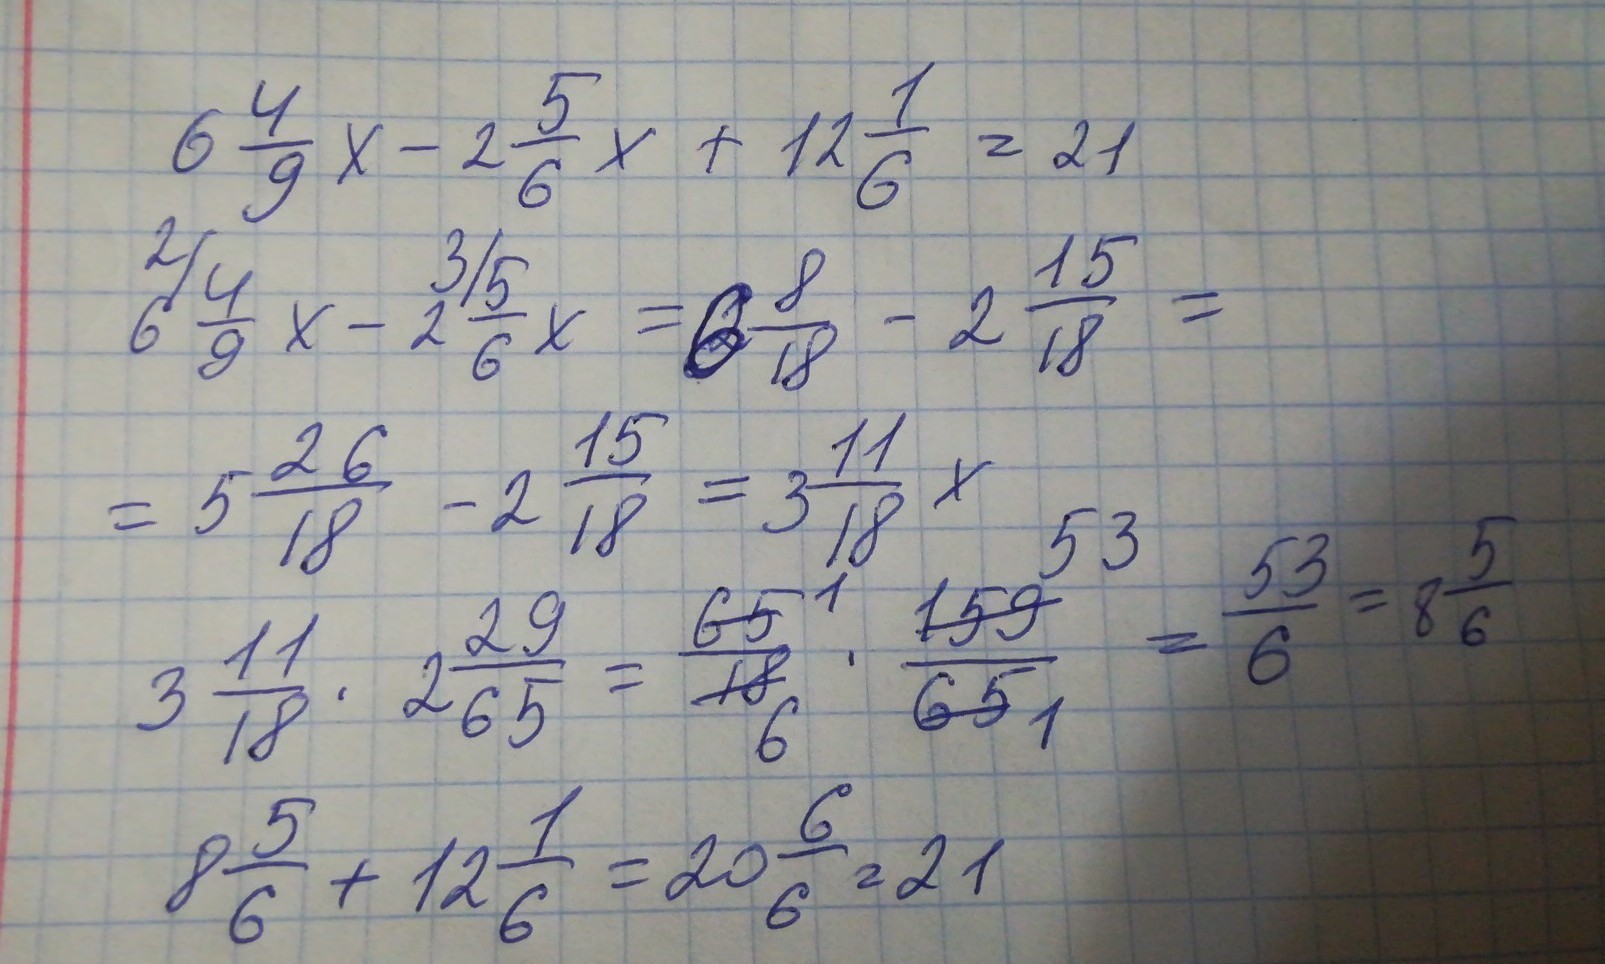 6 4/9 x - 2 5/6 x + 12 1/6 = 21
6 2/ 4/9 x - 2 3/ 5/6 x = 6 8/18 - 2 15/18 =
= 5 26/18 - 2 15/18 = 3 11/18 x
3 11/18 · 2 29/65 = 65 1/18 6 · 159 53/65 1 = 53/6 = 8 5/6
8 5/6 + 12 1/6 = 20 6/6 = 21